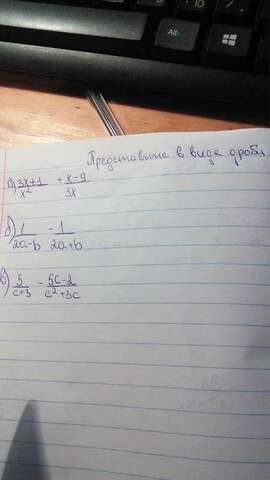 Alt
Представьте в виде дроби
а) 3x+1/x² + x-9/3x
б) 1/2a-b - 1/2a+b
в) 5/c+3 - 5c-2/c²+3c